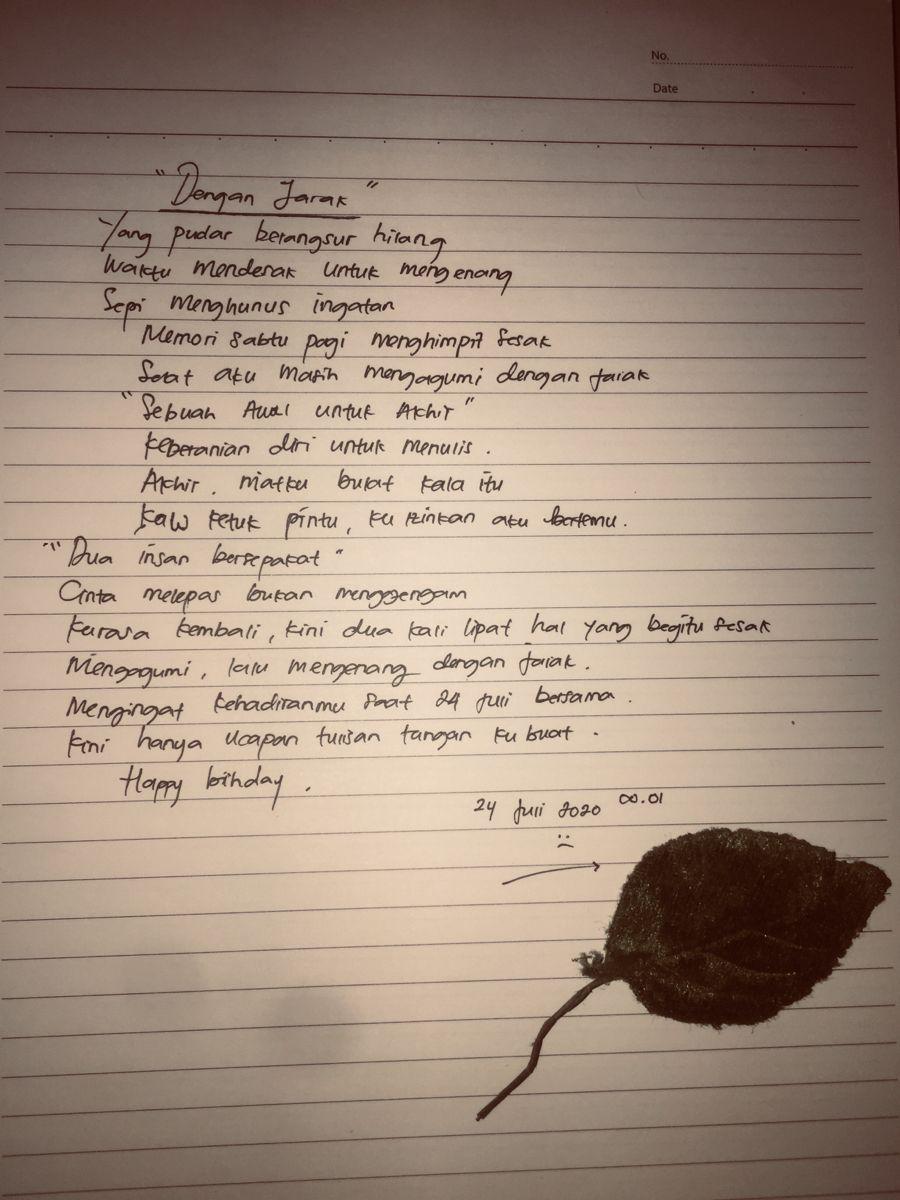 No.
Date
"Dengan Jarak"
Yang pudar berangsur hilang
Waktu mendesak untuk mengenang
Sepi menghunus ingatan
Memori sabtu pagi menghimpit sesak
Saat aku masih mengagumi dengan jarak
"Sebuah Awal untuk Akhir"
Keberanian diri untuk menulis.
Akhir. niatku bulat kala itu
Kaw ketuk pintu, ku izinkan aku bertemu.
"Dua insan bersepakat"
Cinta melepas bukan menggengam
Kurasa kembali, kini dua kali lipat hal yang begitu sesak
Mengagumi, lalu mengenang dengan jarak.
Mengingat kehadiranmu saat 24 Juli bersama.
Kini hanya ucapan tulisan tangan ku buat.
Happy birhday.
24 Juli 2020 00.01